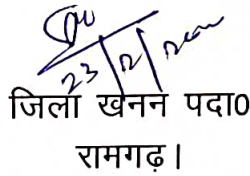 23/12/2020
जिला खनन पदा0
रामगढ़।